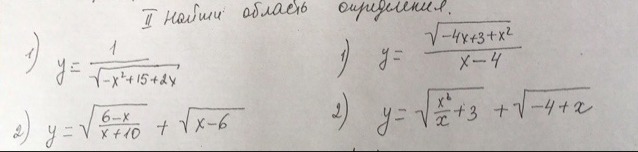 II Найти область определения.
1) y = \frac{1}{\sqrt{-x^2+15+2x}}
2) y = \sqrt{\frac{6-x}{x+10}} + \sqrt{x-6}
1) y = \frac{\sqrt{-4x+3+x^2}}{x-4}
2) y = \sqrt{\frac{x^2}{x}+3} + \sqrt{-4+x}